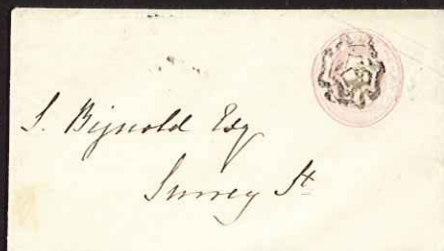 S. Bignold Esq
Surrey St